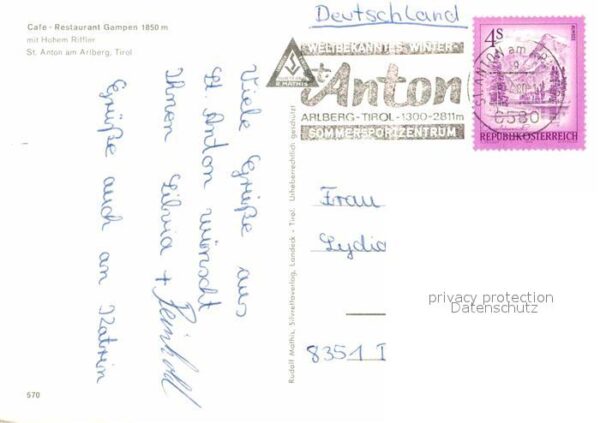 Cafe - Restaurant Gampen 1850 m
mit Hohem Riffler
St. Anton am Arlberg, Tirol
Viele Grüße aus
St. Anton wünscht
Ihnen Silvia + Reinhold
Grüße auch an Katrin
570
Rudolf Mathis, Silvrettaverlag, Landeck - Tirol. Urheberrechtlich geschützt
Deutschland
WELTBEKANNTES WINTER-
St. Anton
ARLBERG-TIROL-1300-2811m
SOMMERSPORTZENTRUM
R. MATHIS
4S
ST. ANTON am
6580
REPUBLIK ÖSTERREICH
Frau
Lydia
8351 I
privacy protection
Datenschutz